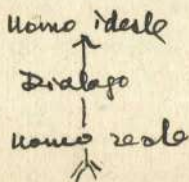 Uomo ideale
Dialogo
Uomo reale